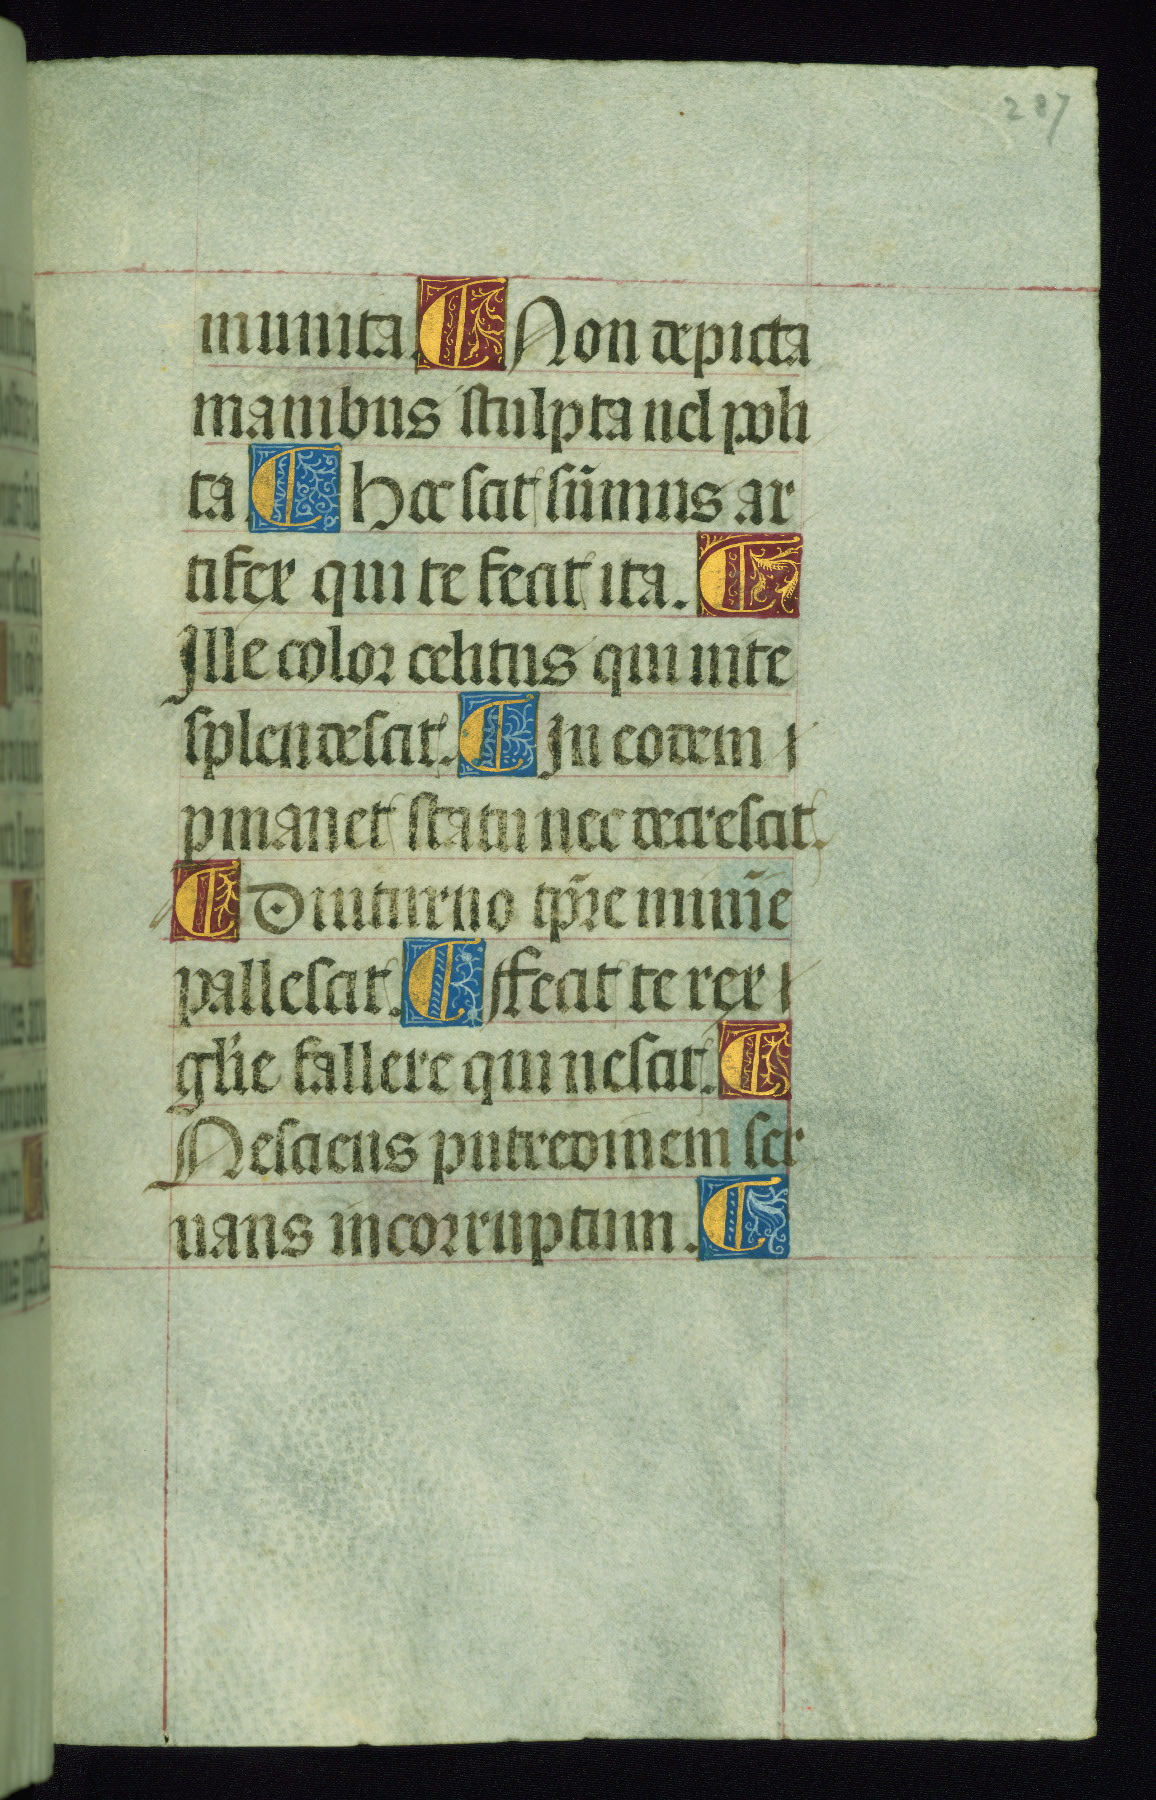 287
munita. Non depicta
manibus sculpta uel poli
ta Hec scit sūmus ar
tifex qui te fecit ita.
Ille color celitus qui inte
splendescit. In eodem
pmanet statu nec decrescit.
Diuturno tp̄re minīe
pallescit. Ffecit te rex
gl̄ie fallere qui nescit.
Nesciens putredinem ser
uans incorruptum.